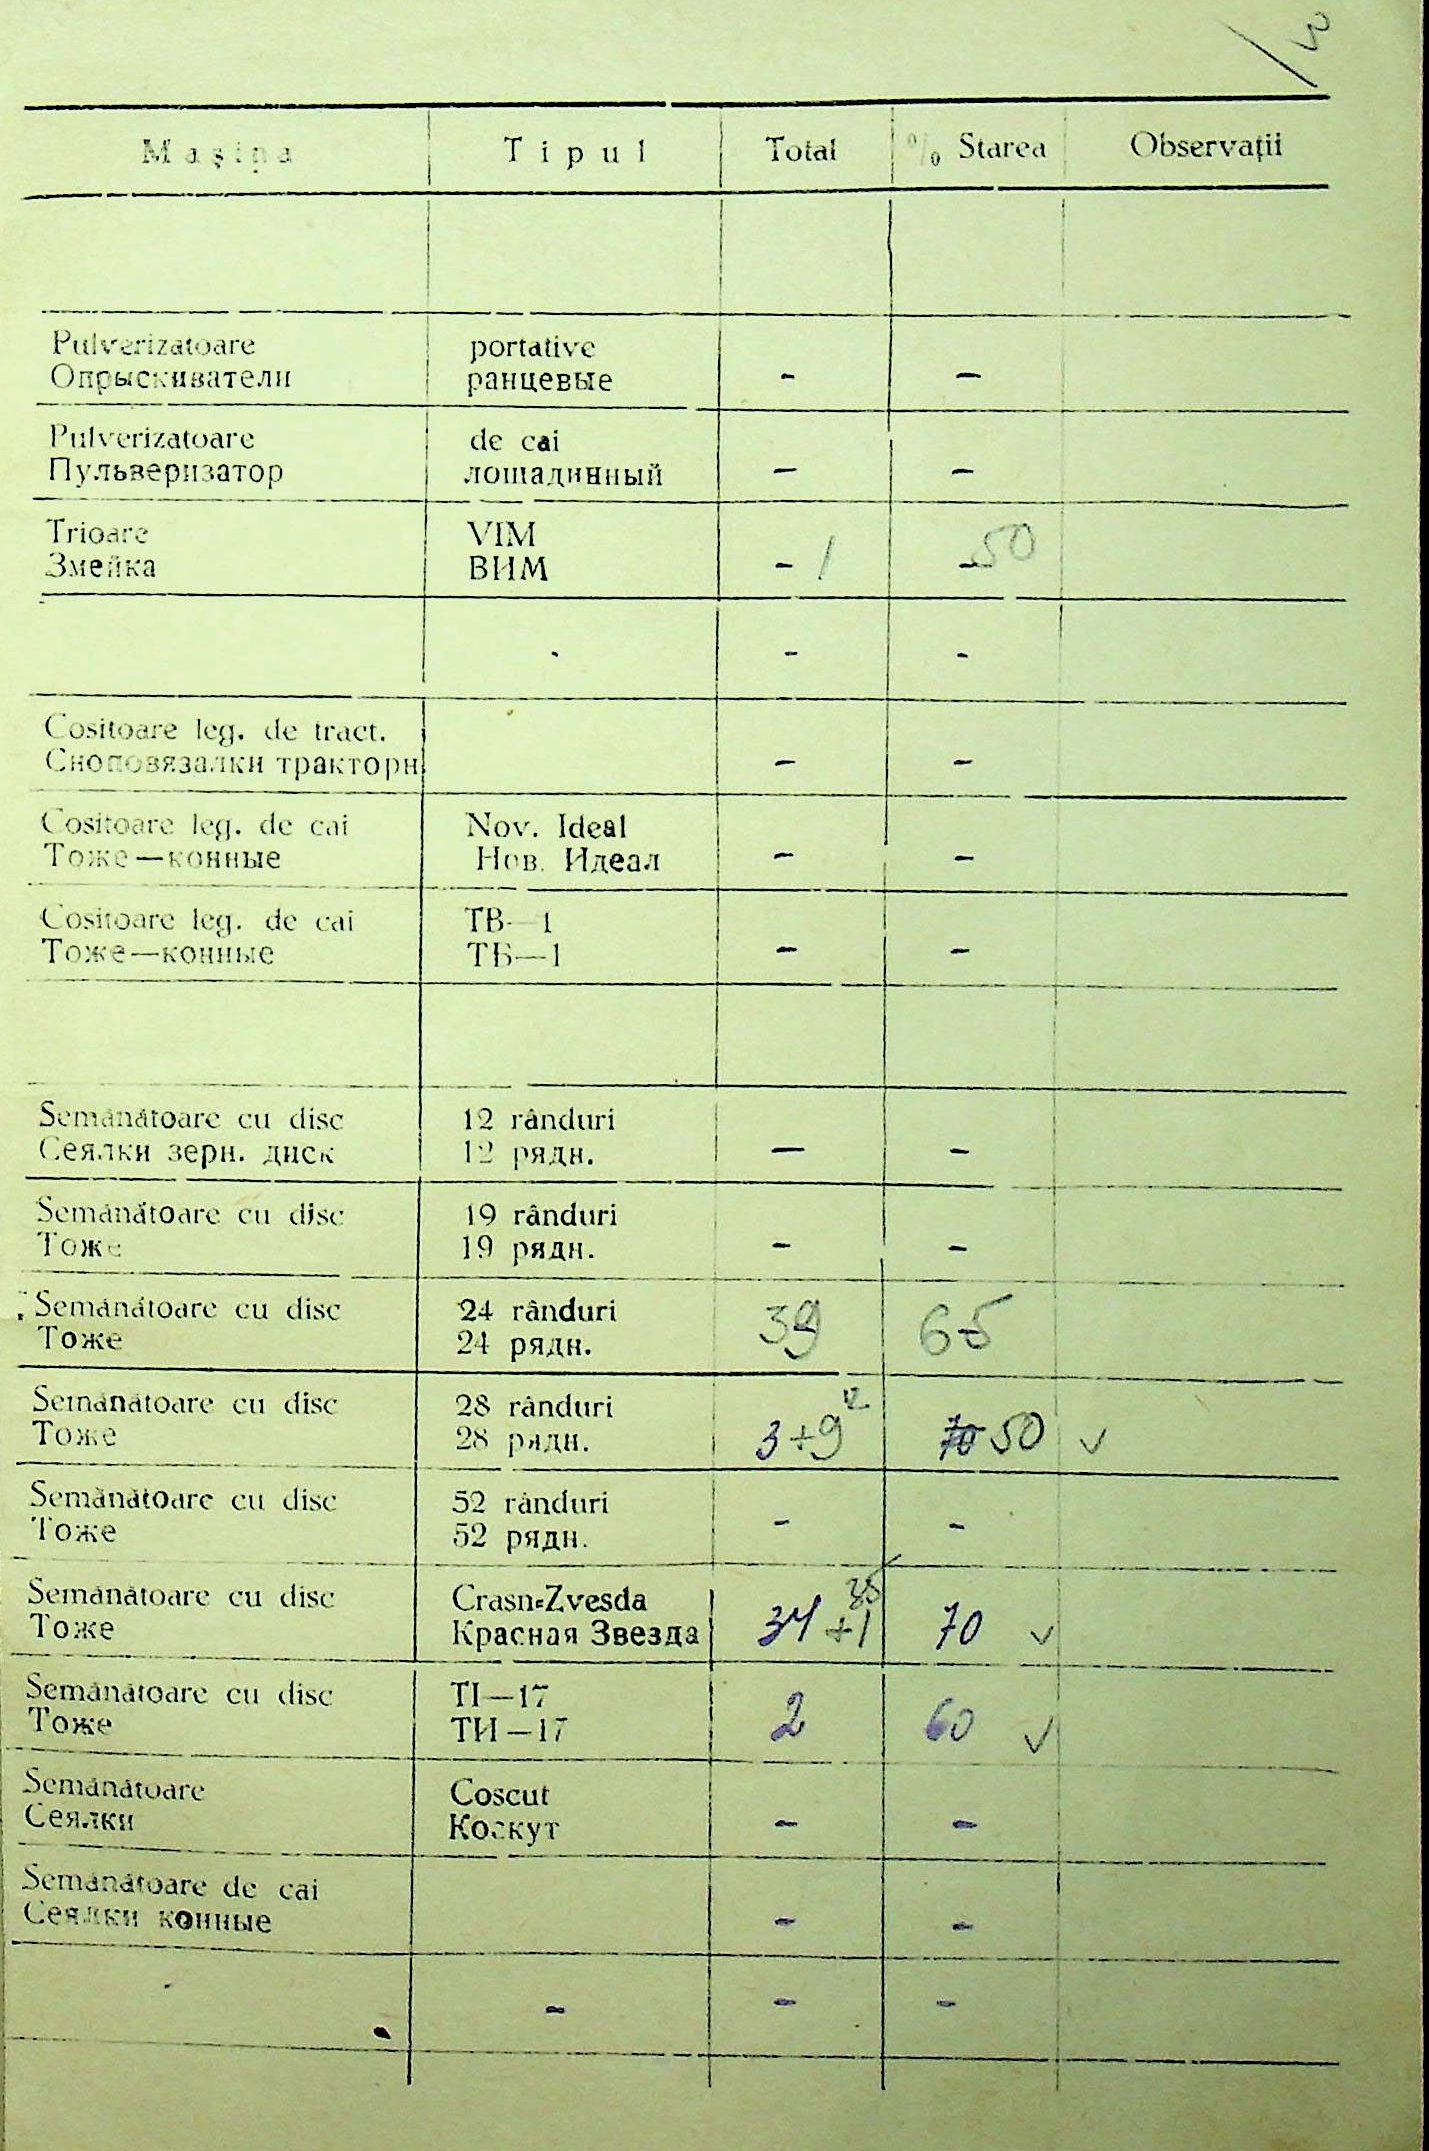 3
Mașina Tipul Total % Starea Observații
Pulverizatoare portative
Опрыскиватели ранцевые - -
Pulverizatoare de cai
Пульверизатор лошадинный - -
Trioare VIM
Змейка ВИМ - 1 - 50
- -
Cositoare leg. de tract.
Сноповязалки тракторн - -
Cositoare leg. de cai Nov. Ideal
Тоже—конные Нов. Идеал - -
Cositoare leg. de cai TB—1
Тоже—конные ТБ—1 - -
Semănătoare cu disc 12 rânduri
Сеялки зерн. диск 12 рядн. — -
Semănătoare cu disc 19 rânduri
Тоже 19 рядн. - -
Semănătoare cu disc 24 rânduri
Тоже 24 рядн. 39 65
Semănătoare cu disc 28 rânduri 12
Тоже 28 рядн. 3+9 70 50 ✓
Semănătoare cu disc 52 rânduri
Тоже 52 рядн. - -
Semănătoare cu disc Crasn-Zvesda 35
Тоже Красная Звезда 34 +1 70 ✓
Semănătoare cu disc TI—17
Тоже ТИ—17 2 60 ✓
Semănătoare Coscut
Сеялки Коскут - -
Semănătoare de cai
Сеялки конные - -
- - -